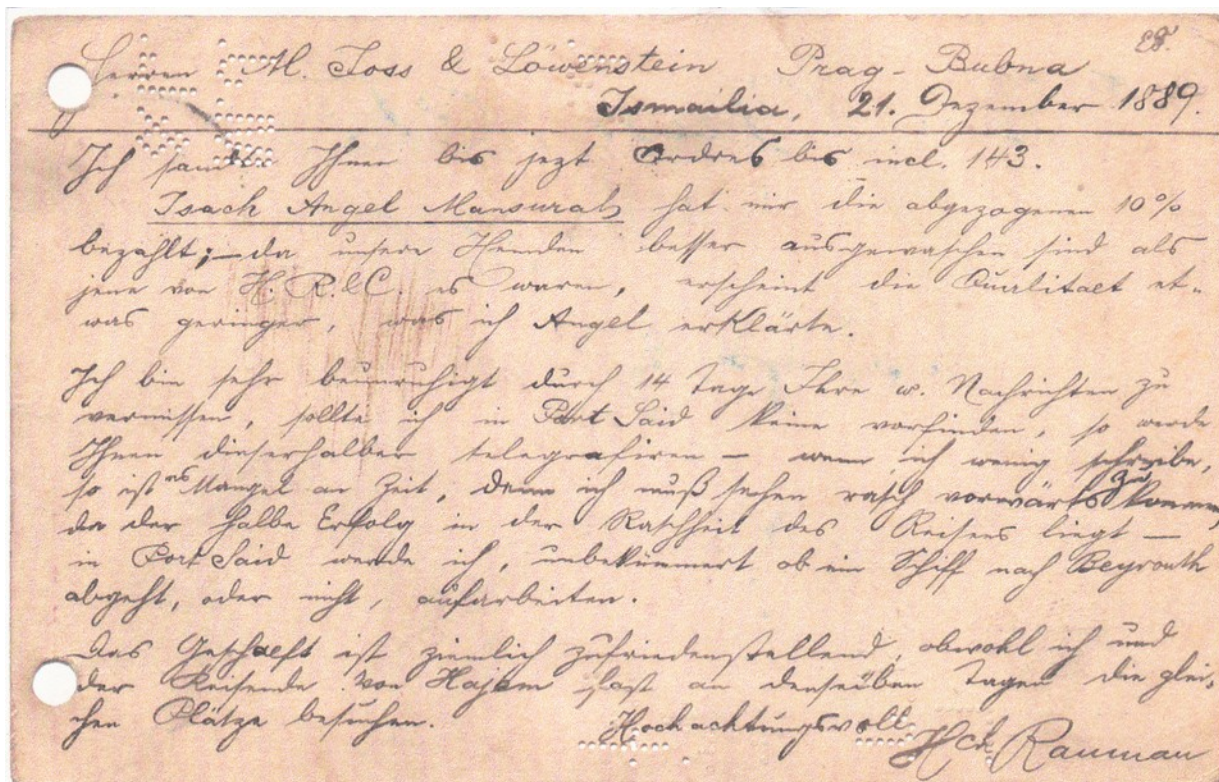 Herren M. Joss & Löwenstein Prag-Bubna
Ismailia, 21. Dezember 1889.
Ich sandte Ihnen bis jezt Ordres bis incl. 143.
Isach Angel Mansurah hat mir die abgezogenen 10%
bezahlt; – da unsere Hemden besser ausgewaschen sind als
jene von H.R.&C. es waren, erscheint die Qualitaet et-
was geringer, was ich Angel erklärte.
Ich bin sehr beunruhigt durch 14 Tage Ihre w. Nachrichten zu
vermissen, sollte ich in Port Said keine vorfinden, so werde
Ihnen dieserhalber telegrafiren – wenn ich wenig schreibe,
so ist es Mangel an Zeit, denn ich muß sehen rasch vorwärts zu kommen,
da der halbe Erfolg in der Raschheit des Reisens liegt –
in Port Said werde ich, unbekümmert ob ein Schiff nach Beyrouth
abgeht, oder nicht, aufarbeiten.
Das Geschaeft ist ziemlich zufriedenstellend, obwohl ich und
der Reisende von Hajam fast an denselben Tagen die glei-
chen Plätze besuchen.
Hochachtungsvoll